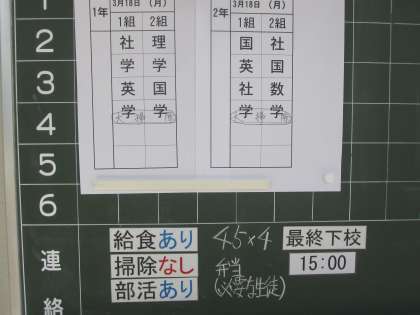 1年 3月18日 (月)
1組 2組
2年 3月18日 (月)
1組 2組
1
2 社 理 国 社
3 学 学 英 国
英 国 社 数
4 学 学 学 学
大掃除 大掃除
5
6
連絡
給食あり 45×4 最終下校
掃除なし 弁当 15:00
部活あり (必要な生徒)